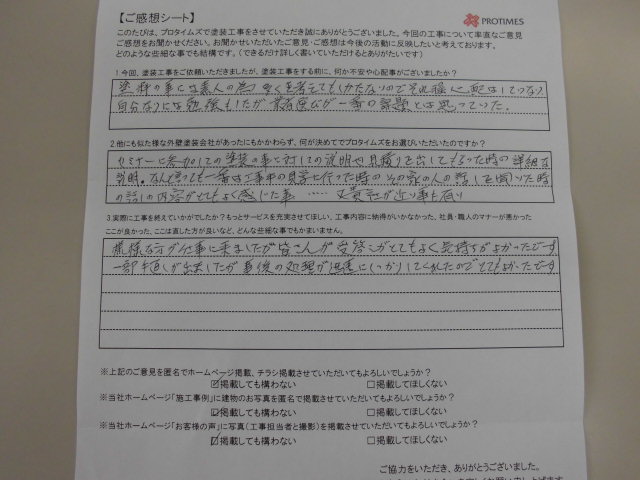 【ご感想シート】
PROTIMES
このたびは、プロタイムズで塗装工事をさせていただき誠にありがとうございました。今回の工事について率直なご意見
ご感想をお聞かせください。お聞かせいただいたご意見・ご感想は今後の活動に反映したいと考えております。
どのような些細な事でも結構です。(できるだけ詳しく書いていただけるとありがたいです)
1.今回、塗装工事をご依頼いただきましたが、塗装工事をする前に、何か不安や心配事がございましたか?
塗料の事には素人の為 しかたないので それ程 心配はしてない
自分なりには勉強もしたが 一番の課題とは思っていた.
2.他にも似た様な外壁塗装会社があったにもかかわらず、何が決めてでプロタイムズをお選びいただいたのですか?
セミナーに参加しての塗装の事に対しての説明や見積りを出してもらった時の詳細な
説明。なんと言っても一番は工事中の見学に行った時のその家の人の話しで聞いた時
の話の内容がとてもよく感じた事 ‥‥
3.実際に工事を終えていかがでしたか?もっとサービスを充実させてほしい、工事内容に納得がいかなかった、社員・職人のマナーが悪かった
ここが良かった、ここは直した方が良いなど、どんな些細な事でもかまいません。
様様な方が仕事に来ましたが皆さんが受答えがとてもよく気持ちがよかったでーす
一部手直しが出ましたが 事後の処理が迅速にしっかりしてくれたのでとてもよかったでーす
※上記のご意見を匿名でホームページ掲載、チラシ掲載させていただいてもよろしいでしょうか?
☑掲載しても構わない □掲載してほしくない
※当社ホームページ「施工事例」に建物のお写真を匿名で掲載させていただいてもよろしいでしょうか?
☑掲載しても構わない □掲載してほしくない
※当社ホームページ「お客様の声」に写真(工事担当者と撮影)を掲載させていただいてもよろしいでしょうか?
☑掲載しても構わない □掲載してほしくない
ご協力をいただき、ありがとうございました。